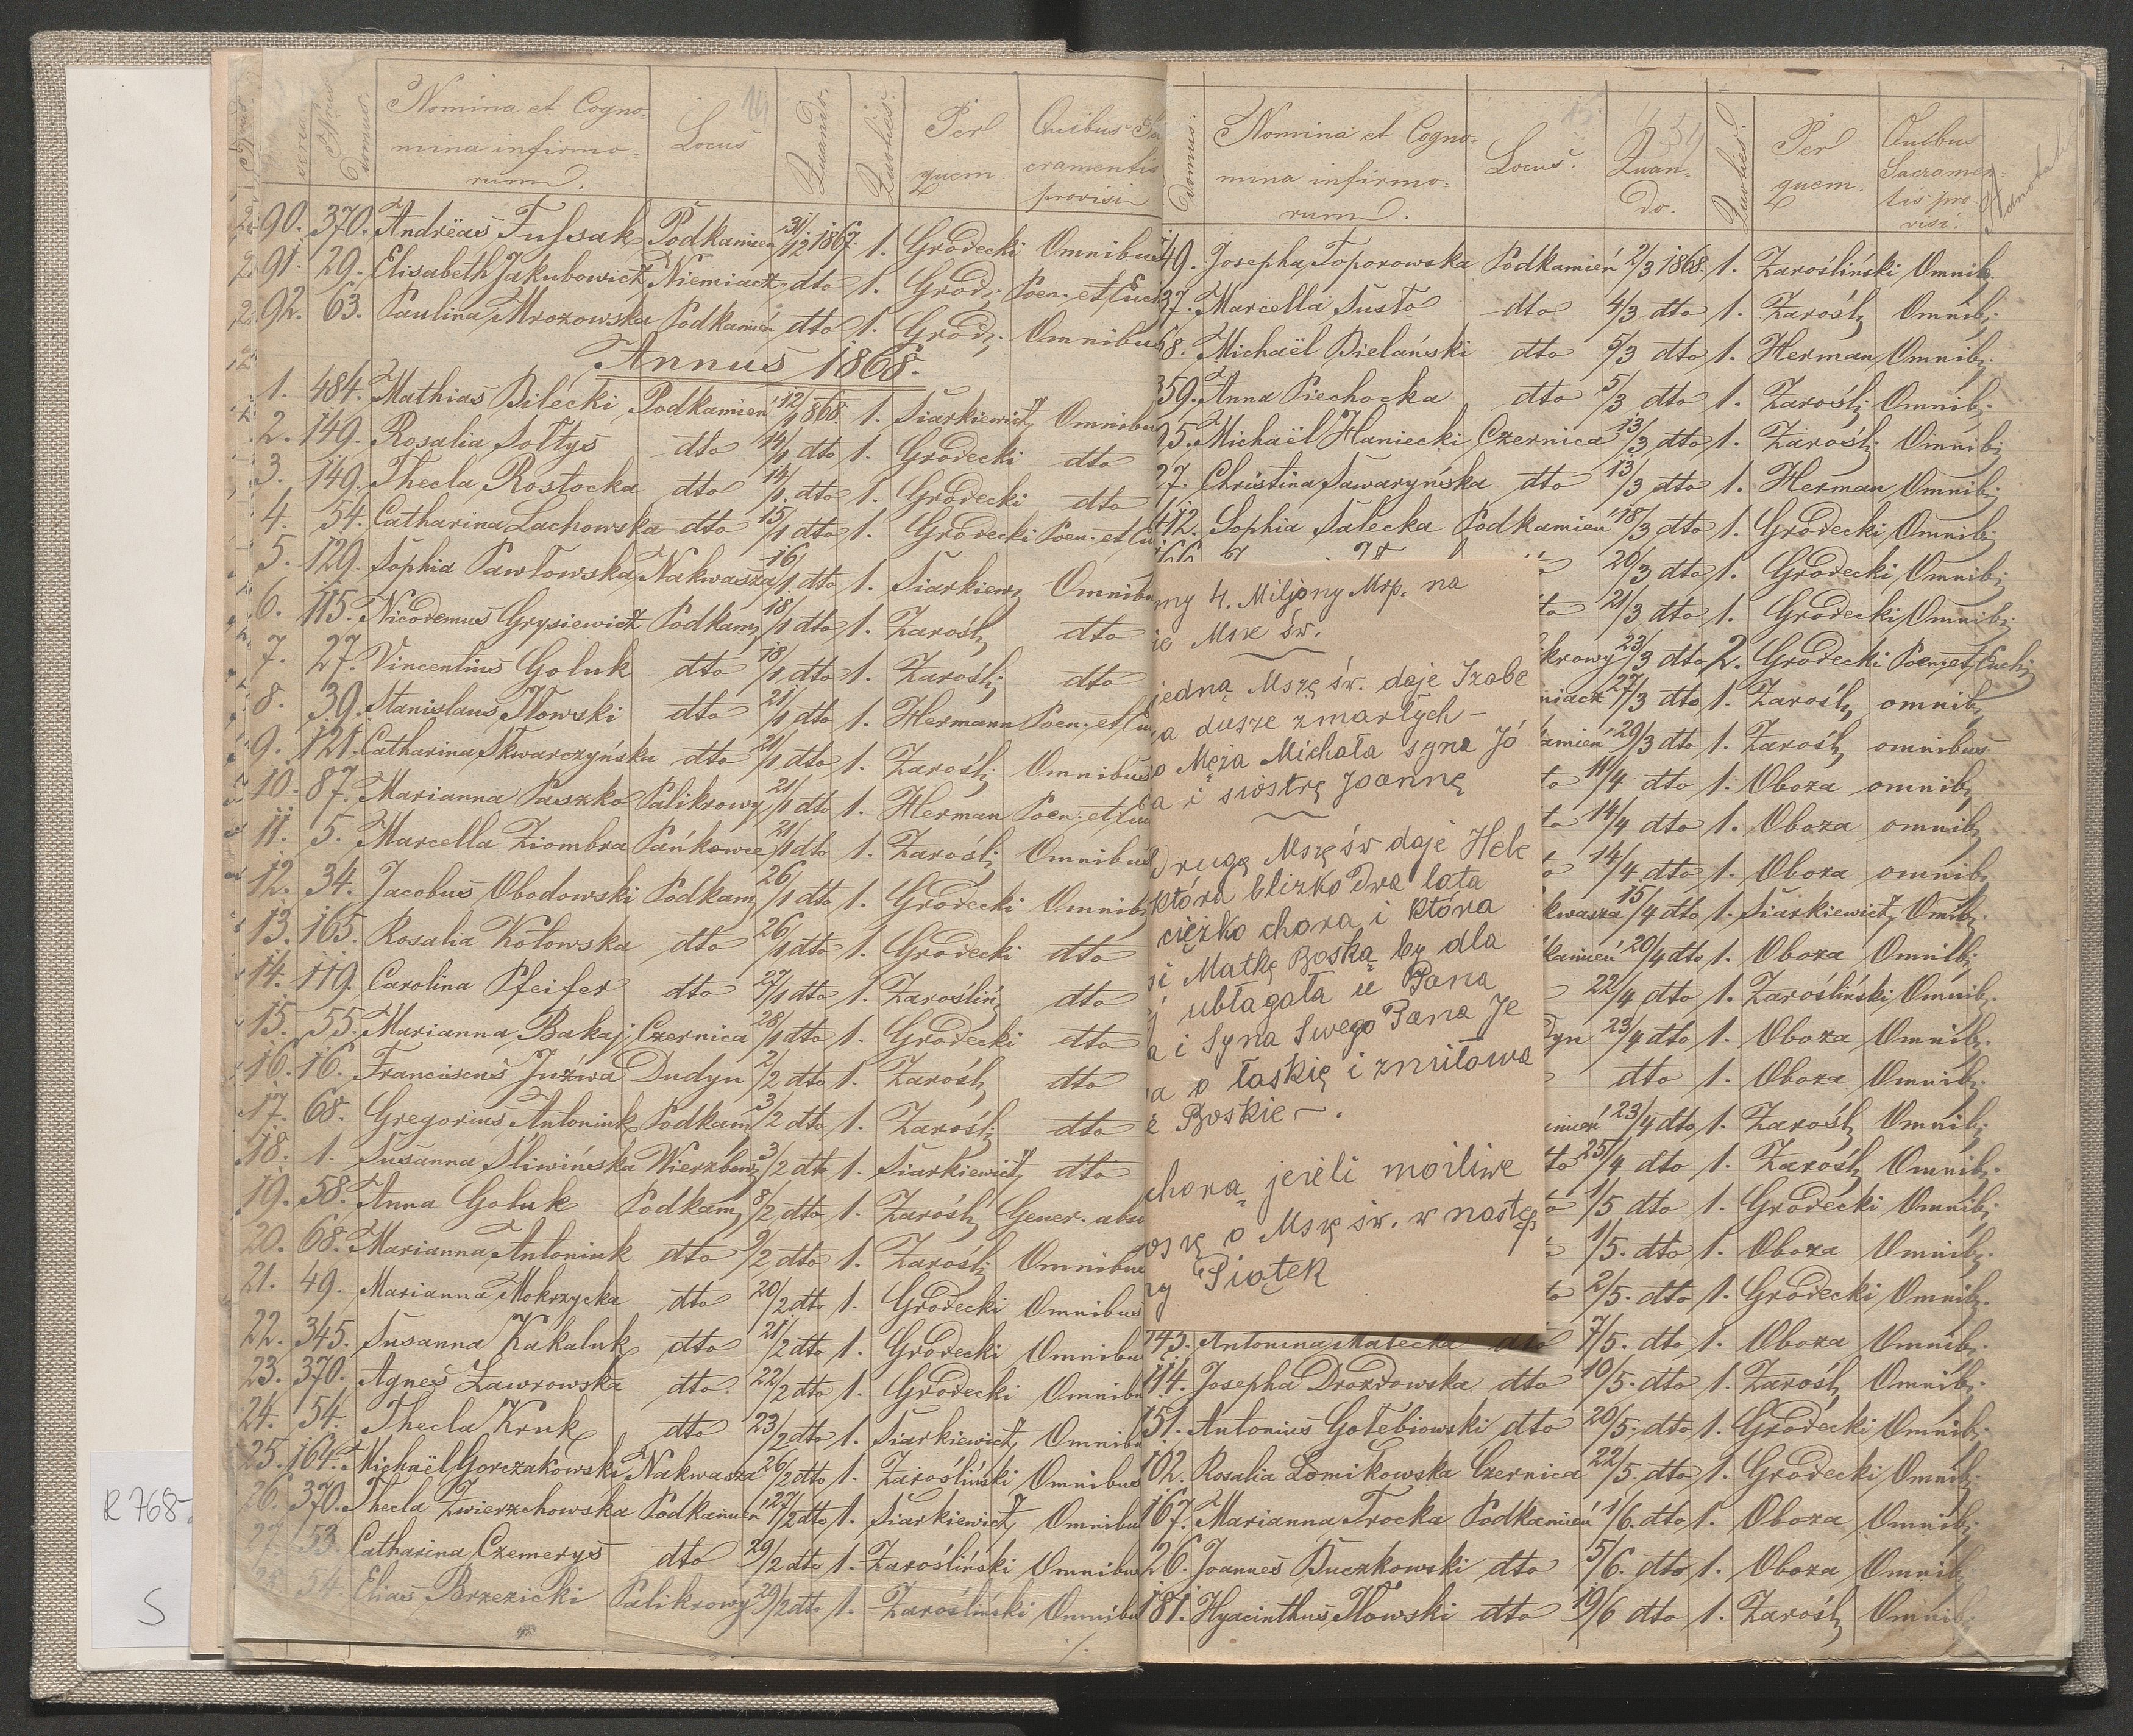 Nrus Domus.
Nomina et Cogno-
mina infirmo-
rum.
Locus
14
Quando.
Quoties.
Per
quem.
Quibus Sa
cramentis
provisi
90. 370. Andreas Tussak Podkamień 31/12 1867. 1. Grodecki Omnibus
91. 29. Elisabeth Jakubowicz Niemiacz dto 1. Grodz. Poen. et Euch
92. 63. Paulina Mrozowska Podkamień dto 1. Grodz. Omnibus
Annus 1868.
1. 484. Mathias Bilecki Podkamień 12/1 868. 1. Siarkiewicz Omnibu
2. 149. Rosalia Sołtys dto 14/1 dto 1. Grodecki dto
3. 149. Thecla Rostocka dto 14/1. dto 1. Grodecki dto
4. 54. Catharina Lachowska dto 15/1 dto 1. Grodecki Poen. et Eu
5. 129. Sophia Pawłowska Nakwasza 16/1. dto 1. Siarkiewz Omnibu
6. 115. Nicodemus Grysiewicz Podkam. 18/1 dto 1. Zarośl. dto
7. 27. Vincentius Goluk dto 18/1 dto 1. Zarośl. dto
8. 39. Stanislaus Iłowski dto 21/1 dto 1. Hermann Poen. et Eu
9. 121. Catharina Skwarczyńska dto 21/1 dto 1. Zarośl. Omnibus
10. 87. Marianna Paszko Palikrowy 21/1 dto 1. Herman Poen. et Eu
11. 5. Marcella Ziombra Pańkowce 21/1 dto 1. Zarośl. Omnibus
12. 34. Jacobus Obodowski Podkam. 26/1 dto 1. Grodecki Omnib.
13. 165. Rosalia Kolowska dto 26/1 dto 1. Grodecki dto
14. 119. Carolina Pfeifer dto 27/1 dto 1. Zarośliń. dto
15. 55. Marianna Bakaj Czernica 28/1 dto 1. Grodecki dto
16. 16. Franciscus Juźwa Dudyn 2/2 dto 1. Zarośl. dto
17. 68. Gregorius Antoniuk Podkam. 3/2 dto 1. Zarośl. dto
18. 1. Susanna Śliwińska Wierzbow. 3/2 dto 1. Siarkiewicz dto
19. 58. Anna Goluk Podkam. 8/2 dto 1. Zarośl. Gener. abso
20. 68. Marianna Antoniuk dto 9/2 dto 1. Zarośl. Omnibus
21. 49. Marianna Mokrzycka dto 20/2 dto 1. Grodecki Omnibus
22. 345. Susanna Kakaluk dto 21/2 dto 1. Grodecki Omnibu
23. 370. Agnes Ławrowska dto. 22/2 dto 1. Grodecki Omnibu
24. 54. Thecla Kruk dto 23/2 dto 1. Siarkiewicz Omnibu
25. 164. Michaël Gorczakowski Nakwasza 26/2 dto 1. Zarośliński Omnibus
26. 370. Thecla Zwierzchowska Podkamień 27/2 dto 1. Siarkiewicz Omnibu
27. 53. Catharina Czemerys dto 29/2 dto 1. Zarośliński Omnibus
28. 54. Elias Brzezicki Palikrowy 29/2 dto 1. Zarośliński Omnibu
R 768
S
Domus.
Nomina et Cogno-
mina infirmo-
rum.
Locus.
15
Quan-
do.
Quoties.
Per
quem.
Quibus
Sacramen-
tis pro-
visi.
49. Josepha Toporowska Podkamień 2/3 1868. 1. Zarośliński Omnib.
37. Marcella Susło dto 4/3 dto 1. Zarośl. Omnib.
68. Michaël Bielański dto 5/3 dto 1. Herman Omnib.
359. Anna Piechocka dto 5/3 dto 1. Zarośl. Omnib.
25. Michaël Haniecki Czernica 13/3 dto 1. Zarośl. Omnib.
27. Christina Sawaryńska dto 13/3 dto 1. Herman Omnib.
412. Sophia Salecka Podkamień 18/3 dto 1. Grodecki Omnib.
20/3 dto 1. Grodecki Omnib.
to 21/3 dto 1. Grodecki Omnib.
krowy 23/3 dto 2. Grodecki Poen. et Euch.
niacz 27/3 dto 1. Zarośl. omnib.
amień 29/3 dto 1. Zarośl. omnibus
to 11/4 dto 1. Oboza omnib.
to 14/4 dto 1. Oboza omnib.
14/4 dto 1. Oboza omnib.
kwasza 15/4 dto 1. Siarkiewicz Omnib.
kamień 20/4 dto 1. Oboza Omnib.
22/4 dto 1. Zarośliński Omnib.
dyn 23/4 dto 1. Oboza Omnib.
dto 1. Oboza Omnib.
mień 23/4 dto 1. Zarośl. Omnib.
to 25/4 dto 1. Zarośl. Omnib.
1/5 dto 1. Grodecki Omnib.
1/5. dto 1. Oboza Omnib.
to 2/5. dto 1. Grodecki Omnib.
145. Antonina Małecka dto 7/5. dto 1. Oboza Omnib.
114. Josepha Drozdowska dto 10/5. dto 1. Zarośl. Omnib.
151. Antonius Gołebiowski dto 20/5. dto 1. Grodecki Omnib.
102. Rosalia Łomikowska Czernica 22/5. dto 1. Grodecki Omnib.
167. Marianna Trocka Podkamień 1/6. dto 1. Oboza Omnib.
26. Joannes Buczkowski dto 5/6. dto 1. Oboza Omnib.
181. Hyacinthus Iłowski dto 19/6 dto 1. Zarośl. Omnib.
my 4. Miljony Mrp. na
ie Msze św.
jedną Mszę św. daje Izabe
a dusze zmarłych –
o Męża Michała syna Jó
a i siostrę Joannę
Drugą Mszę św daje Hele
która blizko Dwa lata
ciężko chora i która
si Matkę Boską by dla
j ubłagała u Pana
a i Syna Swego Pana Je
a o łaskię i zmiłowa
e Boskie –.
chorą jeżeli możliwe
oszę o Mszę św. w następ
ny Piątek